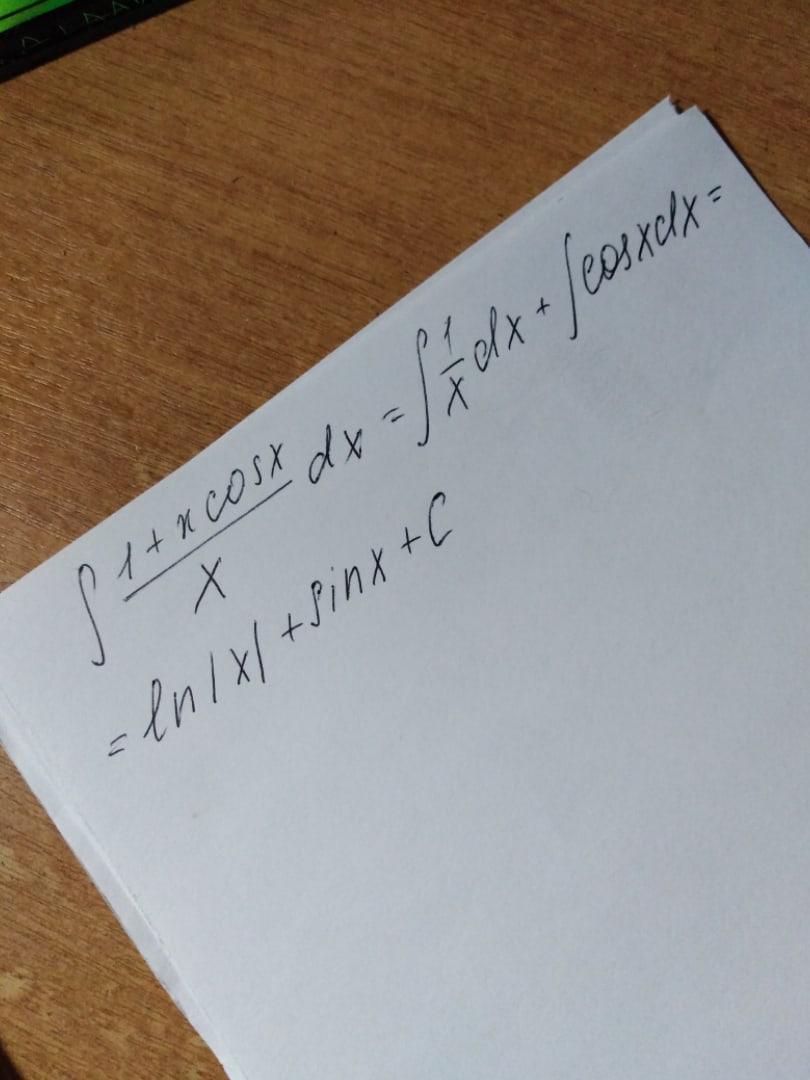 ∫ (1 + x cosx)/x dx = ∫ 1/x dx + ∫ cosxdx =
= ln|x| + sinx + C